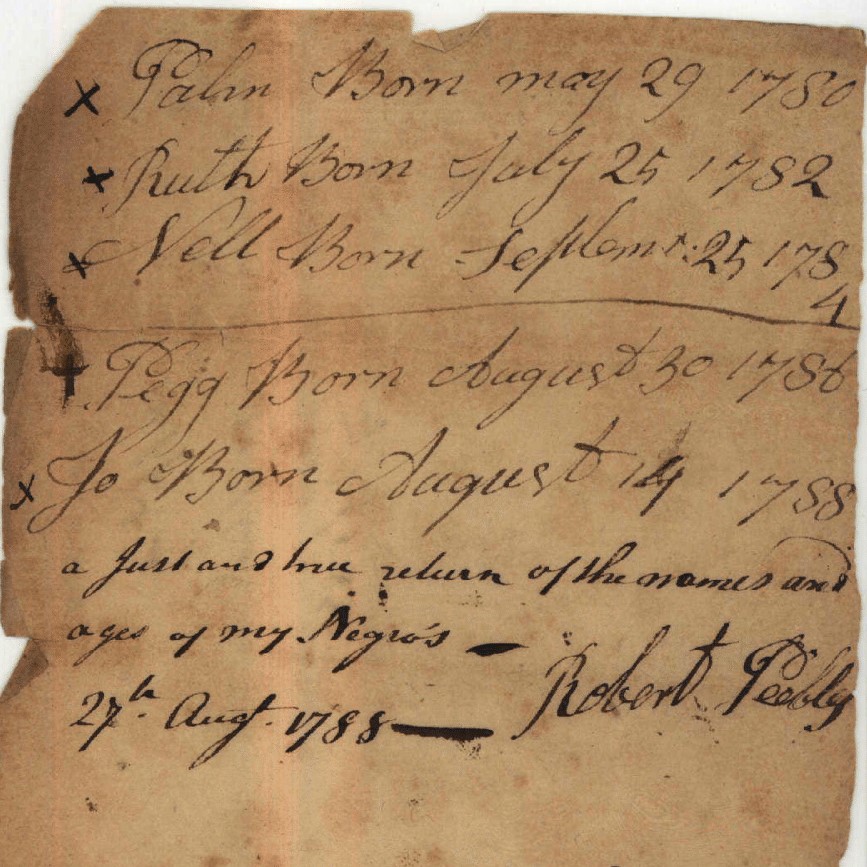 x Palm Born may 29 1780
x Ruth Born July 25 1782
x Nell Born Septemr: 25 178
4
+ Pegg Born August 30 1786
x Jo Born August 14 1788
a Just and true return of the names and
ages of my Negro's —
Robert Peebly
27th. Augt. 1788 —